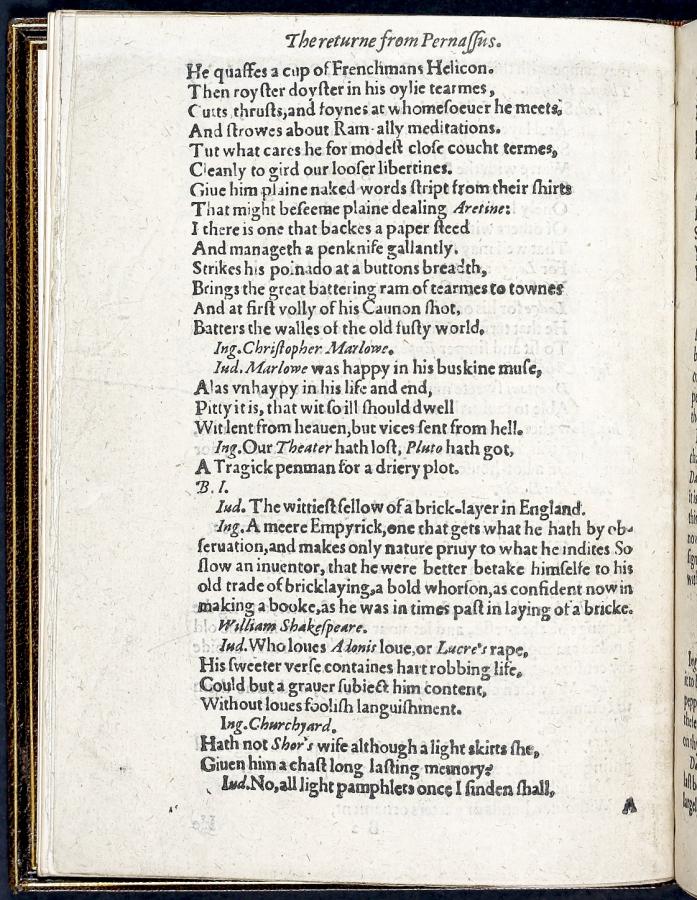 The returne from Pernaſſus.
He quaffes a cup of Frenchmans Helicon.
Then royſter doyſter in his oylie tearmes,
Cutts thruſts,and foynes at whomeſoeuer he meets,
And ſtrowes about Ram-ally meditations.
Tut what cares he for modeſt cloſe coucht termes,
Cleanly to gird our looſer libertines.
Giue him plaine naked words ſtript from their ſhirts
That might beſeeme plaine dealing Aretine:
I there is one that backes a paper ſteed
And manageth a penknife gallantly.
Strikes his poinado at a buttons breadth,
Brings the great battering ram of tearmes to townes
And at firſt volly of his Caunon ſhot,
Batters the walles of the old fuſty world.
Ing.Chriſtopher Marlowe.
Iud.Marlowe was happy in his buskine muſe,
Alas vnhaypy in his life and end,
Pitty it is, that wit ſo ill ſhould dwell
Wit lent from heauen,but vices ſent from hell.
Ing.Our Theater hath loſt, Pluto hath got,
A Tragick penman for a driery plot.
B. I.
Iud. The wittieſt fellow of a brick-layer in England.
Ing.A meere Empyrick,one that gets what he hath by ob-
ſeruation,and makes only nature priuy to what he indites So
ſlow an inuentor, that he were better betake himſelfe to his
old trade of bricklaying,a bold whorſon,as confident now in
making a booke,as he was in times paſt in laying of a bricke.
William Shakeſpeare.
Iud.Who loues Adonis loue,or Lucre's rape,
His ſweeter verſe containes hart robbing life,
Could but a grauer ſubiect him content,
Without loues fooliſh languiſhment.
Ing.Churchyard.
Hath not Shor's wife although a light skirts ſhe,
Giuen him a chaſt long laſting memory?
Iud.No,all light pamphlets once I finden ſhall,
A